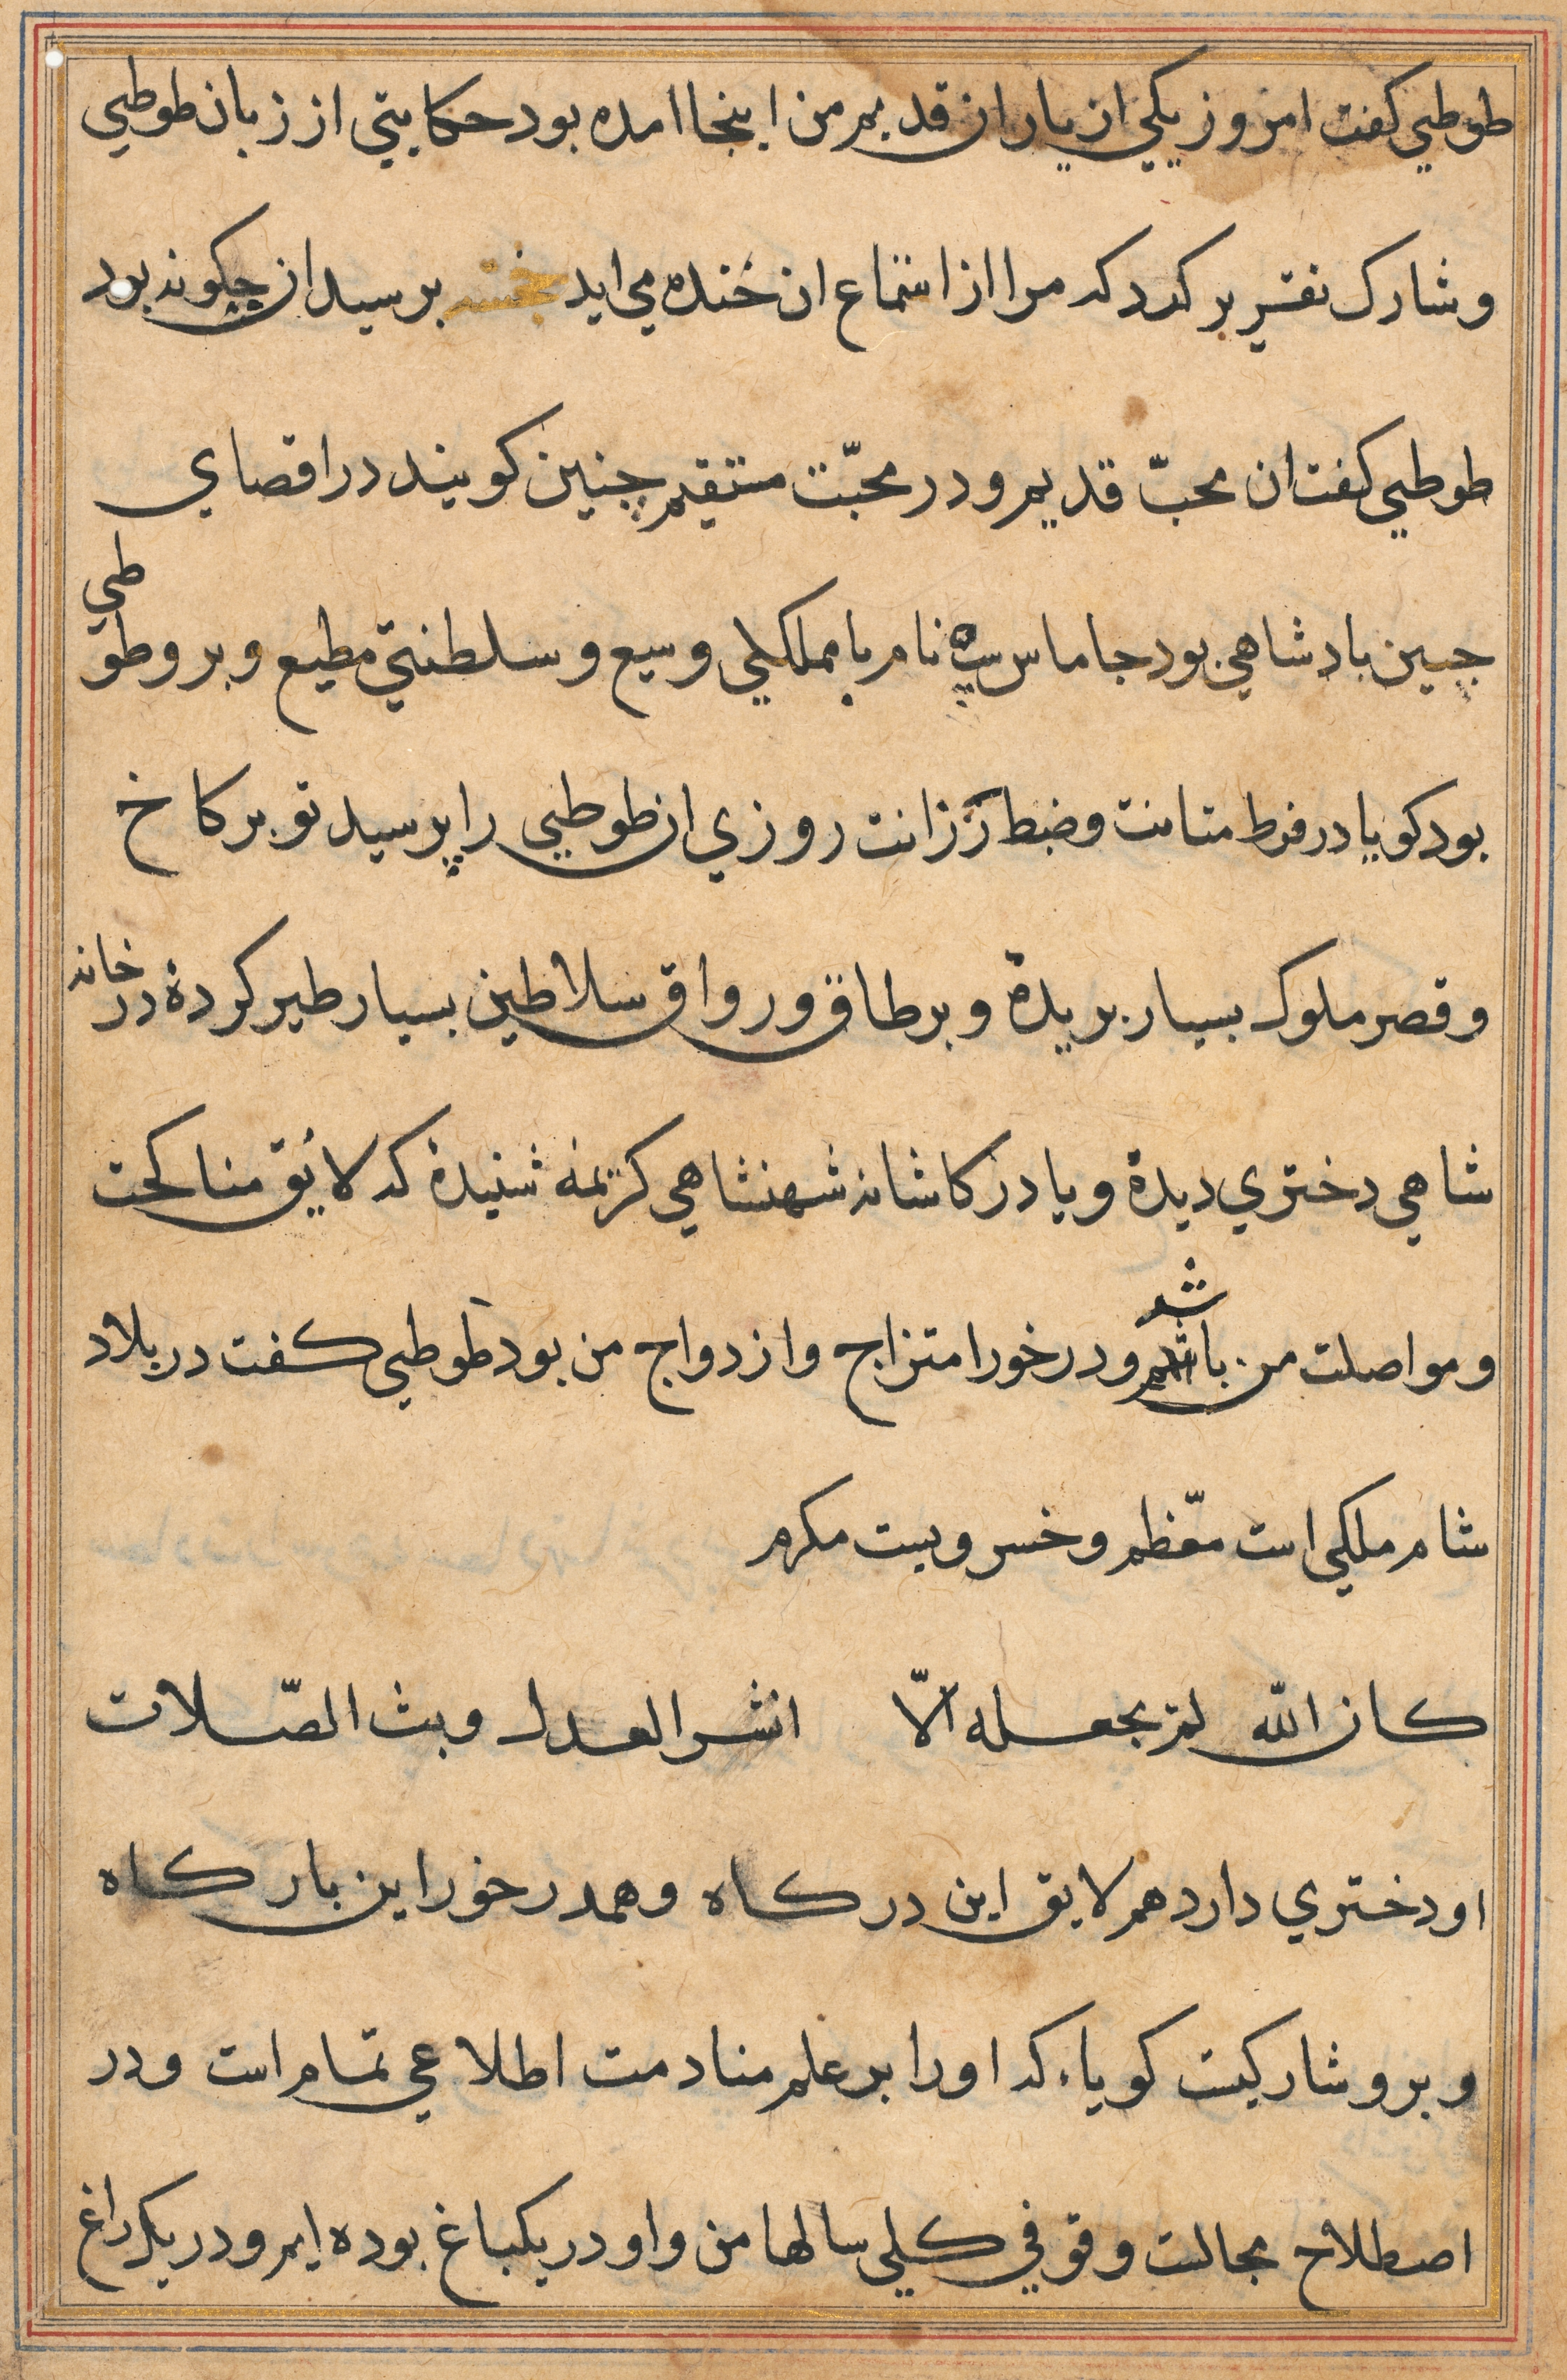 طوطی کفت امروز یکی از یاران قدیم من اینجا امده بود حکایتی از زبان طوطی
و شارک تقریر کرد که مرا از استماع ان خنده می اید نخشبه برسید ان چکونه بود
طوطی کفت ان محبّ قدیم و در محبّت مستقیم چنین کویند در اقصای
چین بادشاهی بود جاماسب نام با مملکتی وسیع و سلطنتی مطیع و برو طوطی
بود کویا در فرط متانت و ضبط رزانت روزی ان طوطی را پرسید تو بر کاخ
و قصر ملوک بسیار بریدهٔ و بر طاق و رواق سلاطین بسیار طیر کردهٔ در خانه
شاهی دختری دیدهٔ و یا در کاشانه شهنشاهی کریمه شنیدهٔ که لایق مناکحت
و مواصلت من باشد و در خور امتزاج و ازدواج من بود طوطی کفت در بلاد
شام ملکی است معّظم و خسرویست مکرم
کان اللّه لم یجعله الّا انشر العدل و بث الصّلات
او دختری دارد هم لایق این درکاه و هم درخور این بارکاه
و برو شارکیست کویاء که او را بر علم منادمت اطلاعی تمام است و در
اصطلاح مجالست وقوفی کلی سالها من و او در یکباغ بوده ایم و در یک راغ